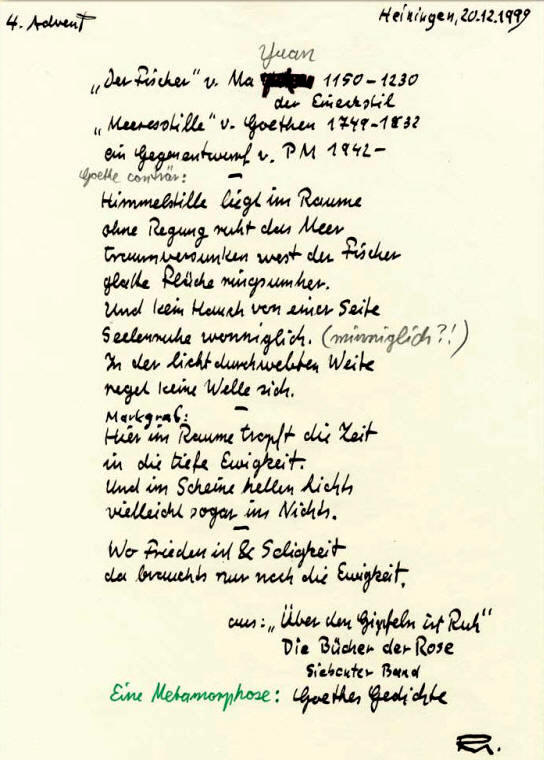 4. Advent
Heiningen, 20.12.1999
Yuan
„Der Fischer" v. Ma 1150–1230
der Eineckstil
„Meeresstille" v. Goethen 1749–1832
ein Gegenentwurf v. PM 1942–
Goethe conträr:
Himmelstille liegt im Raume
ohne Regung ruht das Meer
traumversunken west der Fischer
glatte Fläche ringsumher.
Und kein Hauch von einer Seite
Seelenruhe wonniglich. (minniglich?!)
In der lichtdurchwebten Weite
reget keine Welle sich.
Markgraf:
Hier im Raume tropft die Zeit
in die tiefe Ewigkeit.
Und im Scheine hellen Lichts
vielleicht sogar ins Nichts.
Wo Frieden ist & Seligkeit
da brauchts nur noch die Ewigkeit.
aus: „Über den Gipfeln ist Ruh"
Die Bücher der Rose
Siebenter Band
Eine Metamorphose: Goethes Gedichte